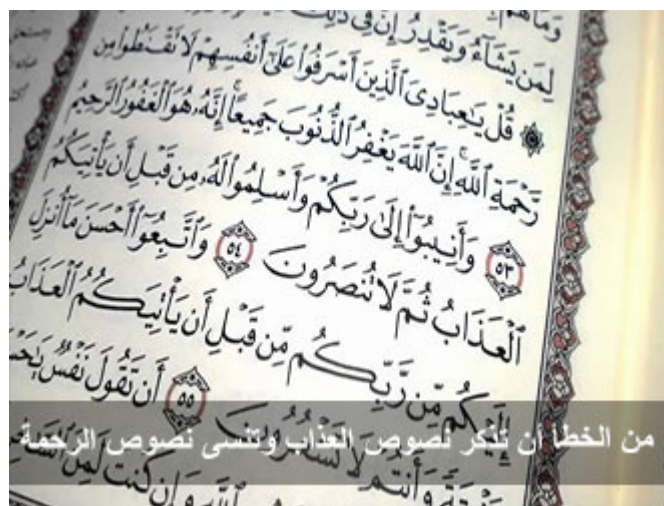 وما هم
لِمَن يَشَآءُ وَيَقْدِرُ إِنَّ فِى ذَٰلِكَ
۞ قُلْ يَٰعِبَادِىَ ٱلَّذِينَ أَسْرَفُوا۟ عَلَىٰٓ أَنفُسِهِمْ لَا تَقْنَطُوا۟ مِن
رَّحْمَةِ ٱللَّهِ ۚ إِنَّ ٱللَّهَ يَغْفِرُ ٱلذُّنُوبَ جَمِيعًا ۚ إِنَّهُۥ هُوَ ٱلْغَفُورُ ٱلرَّحِيمُ
٥٣ وَأَنِيبُوٓا۟ إِلَىٰ رَبِّكُمْ وَأَسْلِمُوا۟ لَهُۥ مِن قَبْلِ أَن يَأْتِيَكُمُ
ٱلْعَذَابُ ثُمَّ لَا تُنصَرُونَ ٥٤ وَٱتَّبِعُوٓا۟ أَحْسَنَ مَآ أُنزِلَ
إِلَيْكُم مِّن رَّبِّكُم مِّن قَبْلِ أَن يَأْتِيَكُمُ ٱلْعَذَابُ
وَأَنتُمْ لَا تَشْعُرُونَ ٥٥ أَن تَقُولَ نَفْسٌ
وَإِن كُنتُ لَمِنَ
من الخطأ أن تذكر نصوص العذاب وتنسى نصوص الرحمة